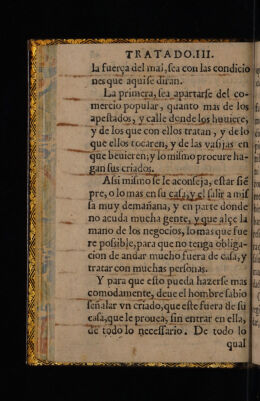 TRATADO.III.
la fuerça del mal, sea con las condicio
nes que aqui se diran.
La primera, sea apartarse del co-
mercio popular, quanto mas de los
apestados, y calle donde los huuiere,
y de los que con ellos tratan, y de lo
que ellos tocaren, y de las vasijas en
que beuieren; y lo mismo procure ha-
gan sus criados.
Assi mismo se le aconseja, estar siē
pre, o lo mas en su casa, y el salir a mis
sa muy demañana, y en parte donde
no acuda mucha gente, y que alçe la
mano de los negocios, lo mas que fue
re possible, para que no tenga obliga-
cion de andar mucho fuera de casa, y
tratar con muchas personas.
Y para que esto pueda hazerse mas
comodamente, deue el hombre sabio
señalar vn criado, que este fuera de su
casa, que le prouea, sin entrar en ella,
de todo lo necessario. De todo lo
qual